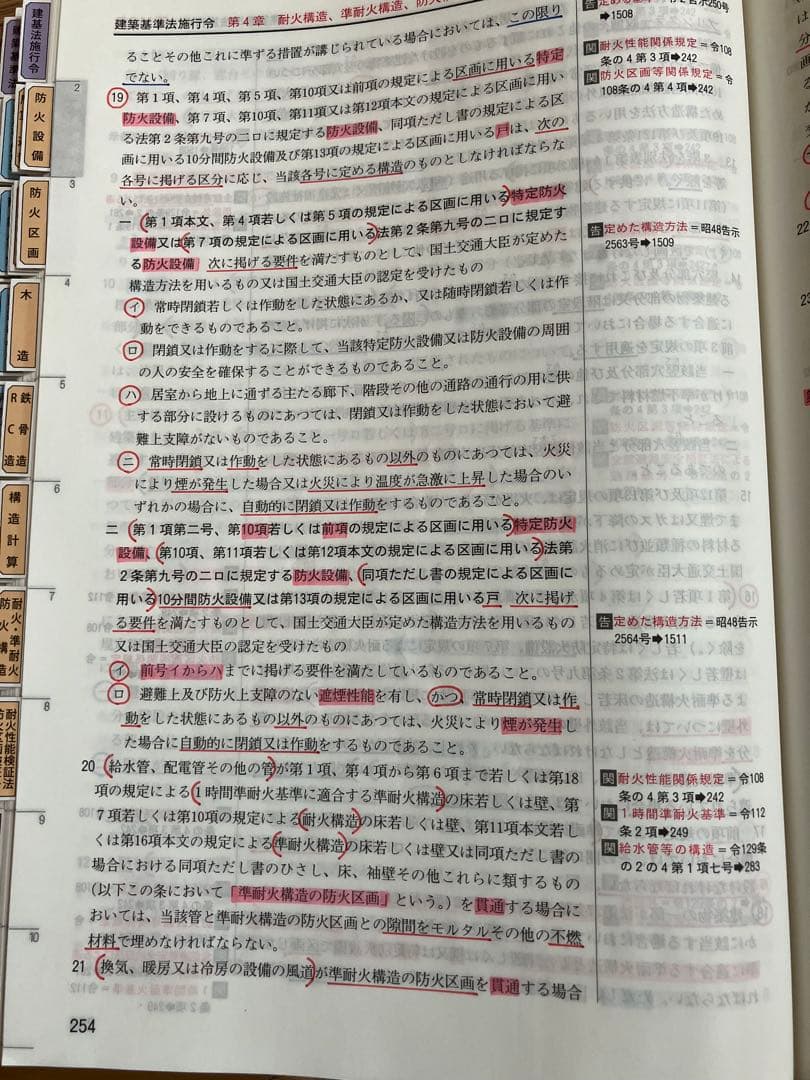 建築基準法施行令 第4章 耐火構造、準耐火構造、防火
ることその他これに準ずる措置が講じられている場合においては、この限り
でない。
19 第1項、第4項、第5項、第10項又は前項の規定による区画に用いる特定
防火設備、第7項、第10項、第11項又は第12項本文の規定による区画に用い
る法第2条第九号の二ロに規定する防火設備、同項ただし書の規定による区
画に用いる10分間防火設備及び第13項の規定による区画に用いる戸は、次の
各号に掲げる区分に応じ、当該各号に定める構造のものとしなければならな
い。
一 第1項本文、第4項若しくは第5項の規定による区画に用いる特定防火
設備又は第7項の規定による区画に用いる法第2条第九号の二ロに規定す
る防火設備 次に掲げる要件を満たすものとして、国土交通大臣が定めた
構造方法を用いるもの又は国土交通大臣の認定を受けたもの
イ 常時閉鎖若しくは作動をした状態にあるか、又は随時閉鎖若しくは作
動をできるものであること。
ロ 閉鎖又は作動をするに際して、当該特定防火設備又は防火設備の周囲
の人の安全を確保することができるものであること。
ハ 居室から地上に通ずる主たる廊下、階段その他の通路の通行の用に供
する部分に設けるものにあつては、閉鎖又は作動をした状態において避
難上支障がないものであること。
ニ 常時閉鎖又は作動をした状態にあるもの以外のものにあつては、火災
により煙が発生した場合又は火災により温度が急激に上昇した場合のい
ずれかの場合に、自動的に閉鎖又は作動をするものであること。
二 第1項第二号、第10項若しくは前項の規定による区画に用いる特定防火
設備、第10項、第11項若しくは第12項本文の規定による区画に用いる法第
2条第九号の二ロに規定する防火設備、同項ただし書の規定による区画に
用いる10分間防火設備又は第13項の規定による区画に用いる戸 次に掲げ
る要件を満たすものとして、国土交通大臣が定めた構造方法を用いるもの
又は国土交通大臣の認定を受けたもの
イ 前号イからハまでに掲げる要件を満たしているものであること。
ロ 避難上及び防火上支障のない遮煙性能を有し、かつ、常時閉鎖又は作
動をした状態にあるもの以外のものにあつては、火災により煙が発生し
た場合に自動的に閉鎖又は作動をするものであること。
20 給水管、配電管その他の管が第1項、第4項から第6項まで若しくは第18
項の規定による1時間準耐火基準に適合する準耐火構造の床若しくは壁、第
7項若しくは第10項の規定による耐火構造の床若しくは壁、第11項本文若し
くは第16項本文の規定による準耐火構造の床若しくは壁又は同項ただし書の
場合における同項ただし書のひさし、床、袖壁その他これらに類するもの
(以下この条において「準耐火構造の防火区画」という。)を貫通する場合に
おいては、当該管と準耐火構造の防火区画との隙間をモルタルその他の不燃
材料で埋めなければならない。
21 換気、暖房又は冷房の設備の風道が準耐火構造の防火区画を貫通する場合
254
➡1508
関 耐火性能関係規定=令108
条の4第3項➡242
関 防火区画等関係規定=令
108条の4第4項➡242
告 定めた構造方法=昭48告示
2563号➡1509
告 定めた構造方法=昭48告示
2564号➡1511
関 耐火性能関係規定=令108
条の4第3項➡242
関 1時間準耐火基準=令112
条2項➡249
関 給水管等の構造=令129条
の2の4第1項七号➡283
建基法施行令
防火設備
防火区画
木造
鉄骨造
RC造
構造計算
耐火・準耐火
防火構造
耐火性能検証法
2
3
4
5
6
7
8
9
10